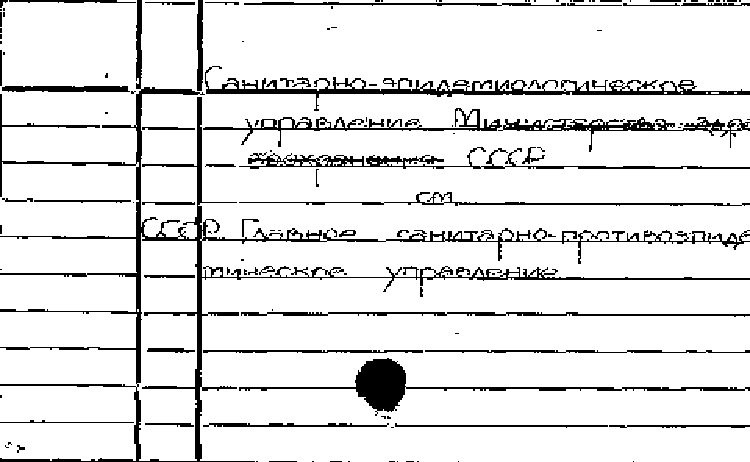 Санитарно-эпидемиологическое
управление Министерства здра
воохранения СССР
см.
СССР. Главное санитарно-противоэпиде
мическое управление